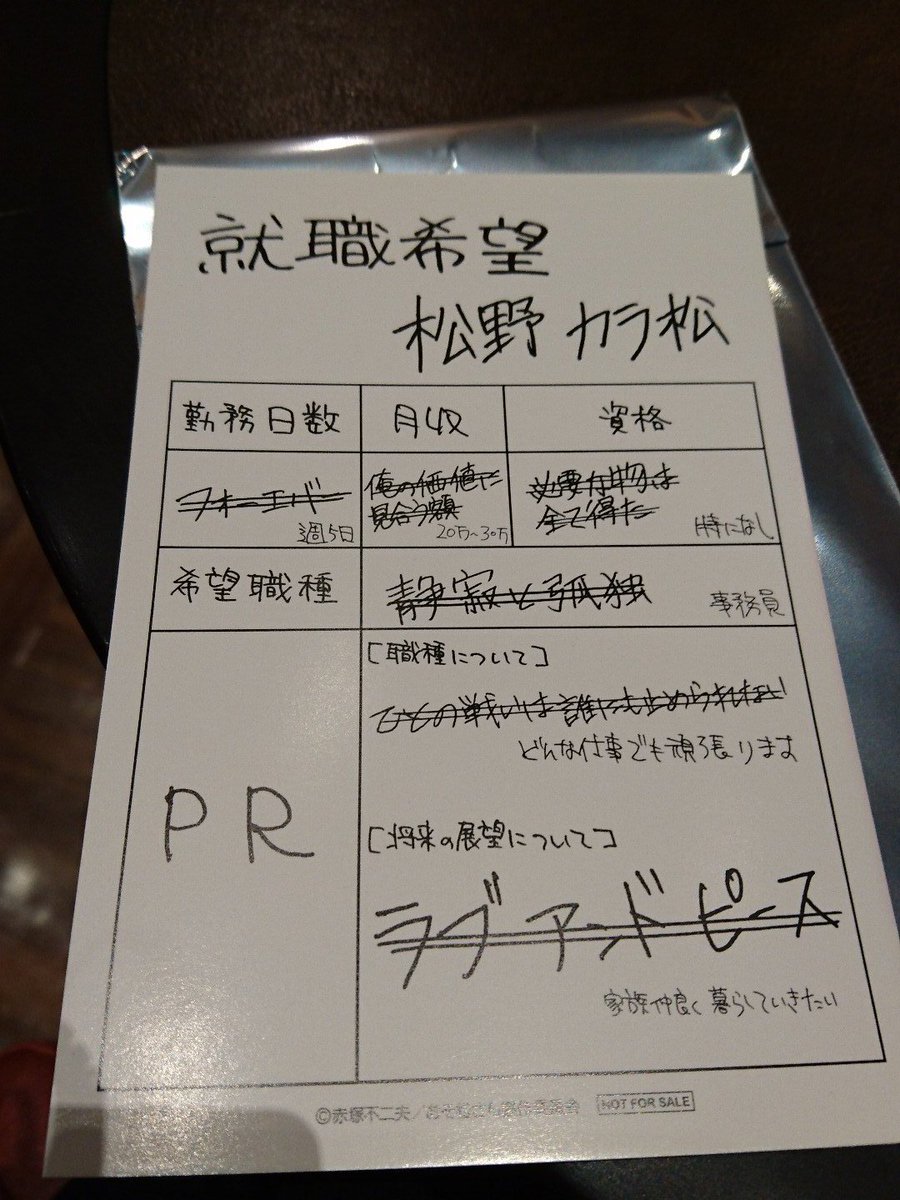 就職希望
松野 カラ松
勤務日数
月収
資格
フォーエバー
週5日
俺の価値に
見合う額
20万~30万
必要な物は
全て得た
特になし
希望職種
静寂と孤独
事務員
PR
[職種について]
ひとの戦いは誰にも止められない
どんな仕事でも頑張ります
[将来の展望について]
ラブアンドピース
家族仲良く暮らしていきたい
©赤塚不二夫/おそ松さん製作委員会
NOT FOR SALE